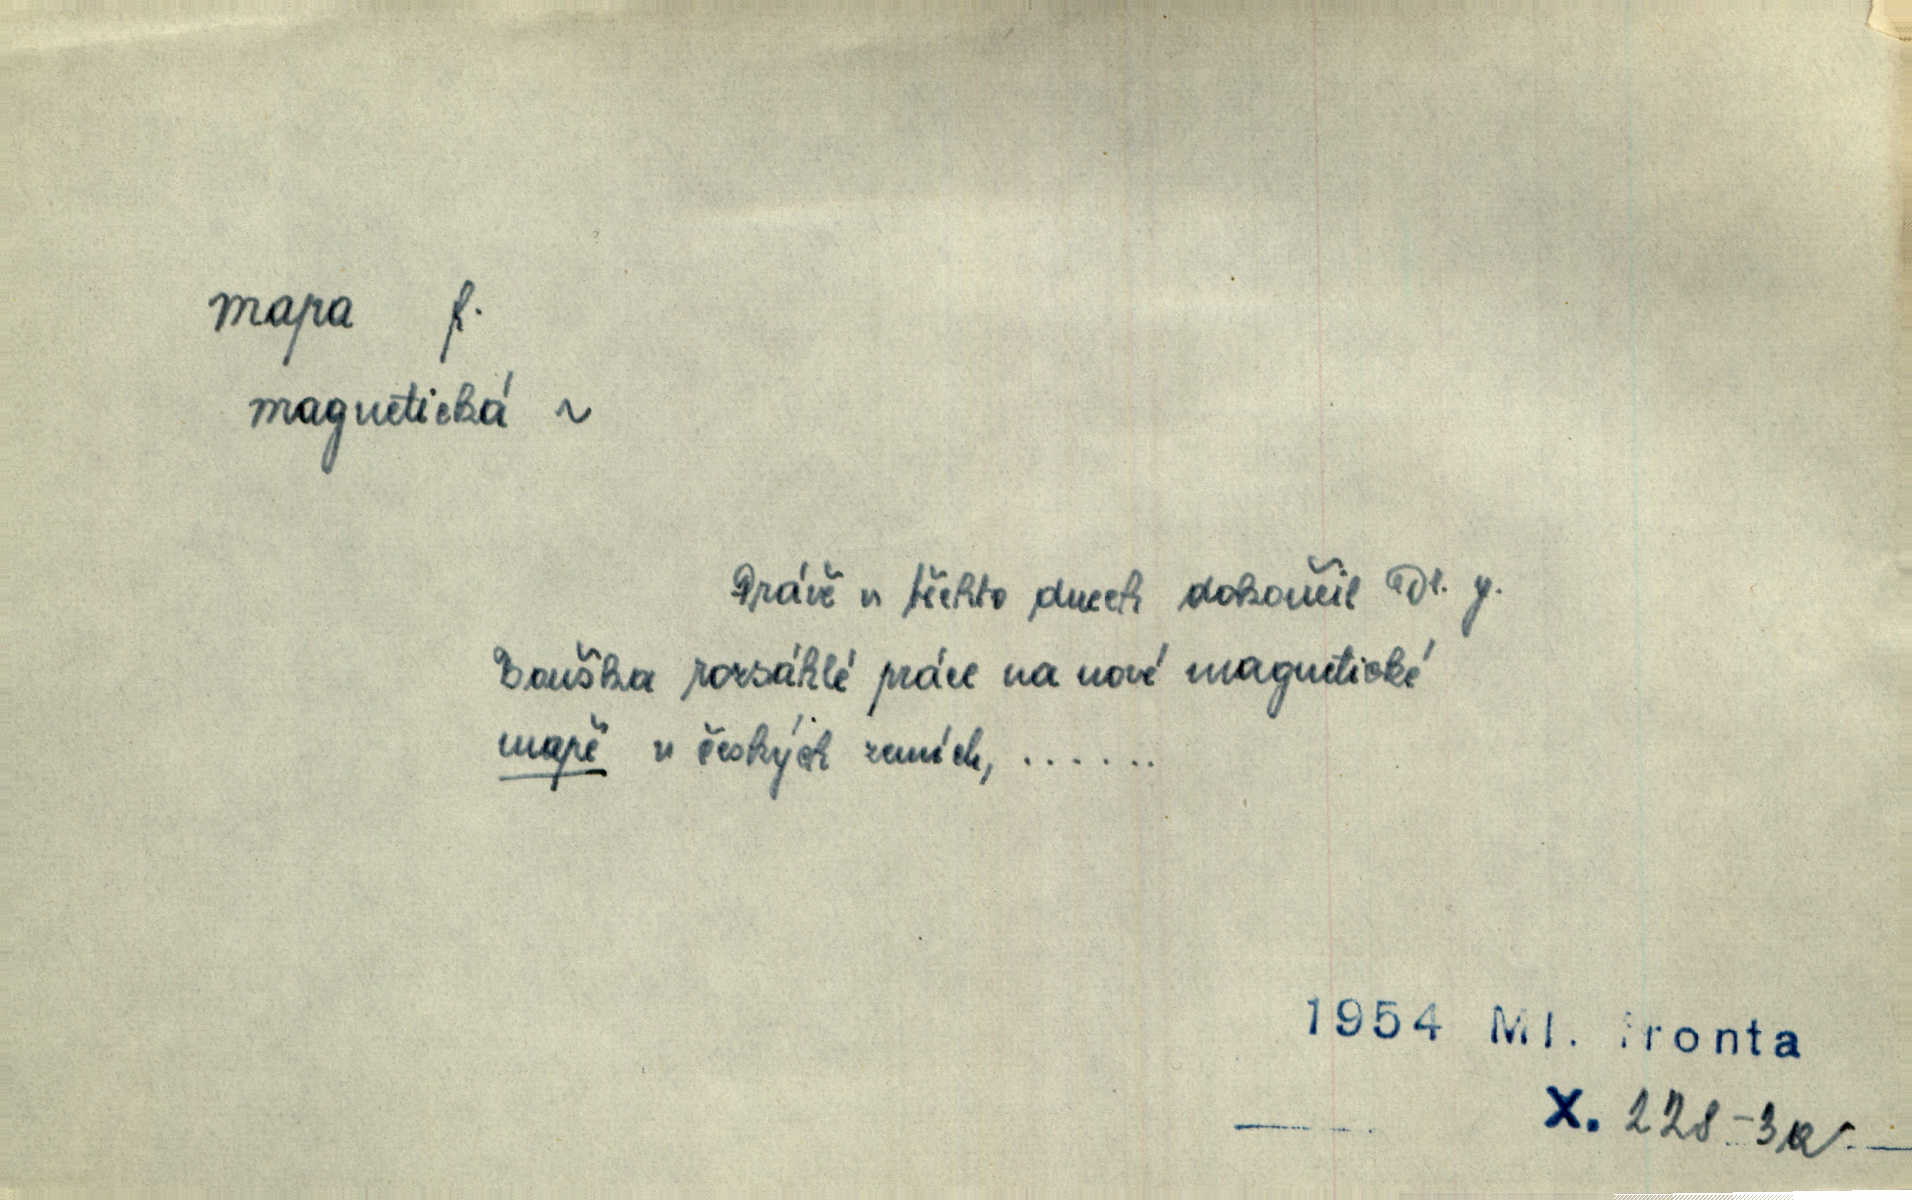 mapa f.
magnetická ~
Právě v těchto dnech dokončil Dr. J.
Bouška rozsáhlé práce na nové magnetické
mapě v českých zemích, .......
1954 Ml. fronta
X. 228-3